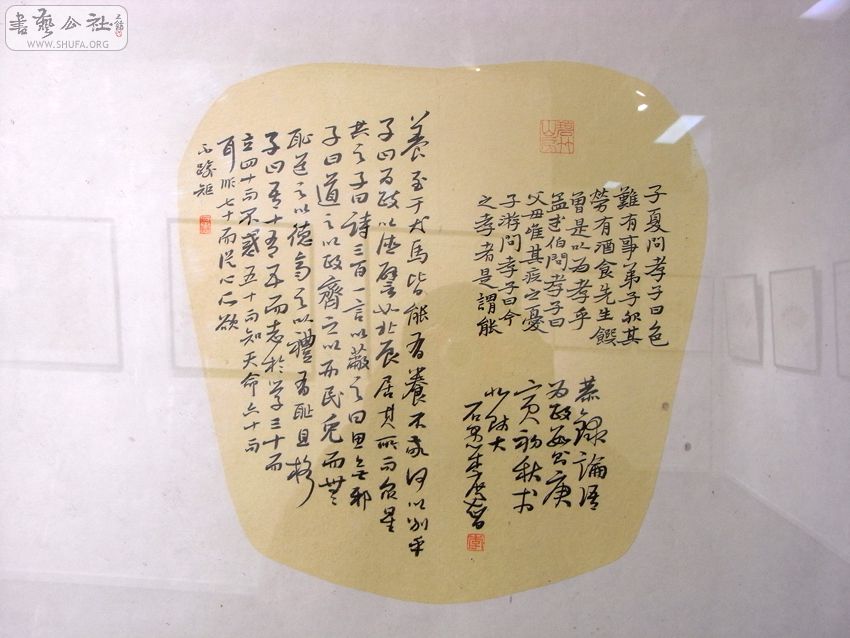 書藝公社
WWW.SHUFA.ORG
子夏問孝子曰色
難有事弟子服其
勞有酒食先生饌
曾是以為孝乎
孟武伯問孝子曰
父母唯其疾之憂
子游問孝子曰今
之孝者是謂能
養至于犬馬皆能有養不敬何以別乎
子曰為政以德譬如北辰居其所而眾星
共之子曰詩三百一言以蔽之曰思無邪
子曰道之以政齊之以刑民免而無
恥道之以德齊之以禮有恥且格
子曰吾十有五而志於學三十而
立四十而不惑五十而知天命六十而
耳順七十而從心所欲
不踰矩
恭錄論語
為政
庚
寅初秋於